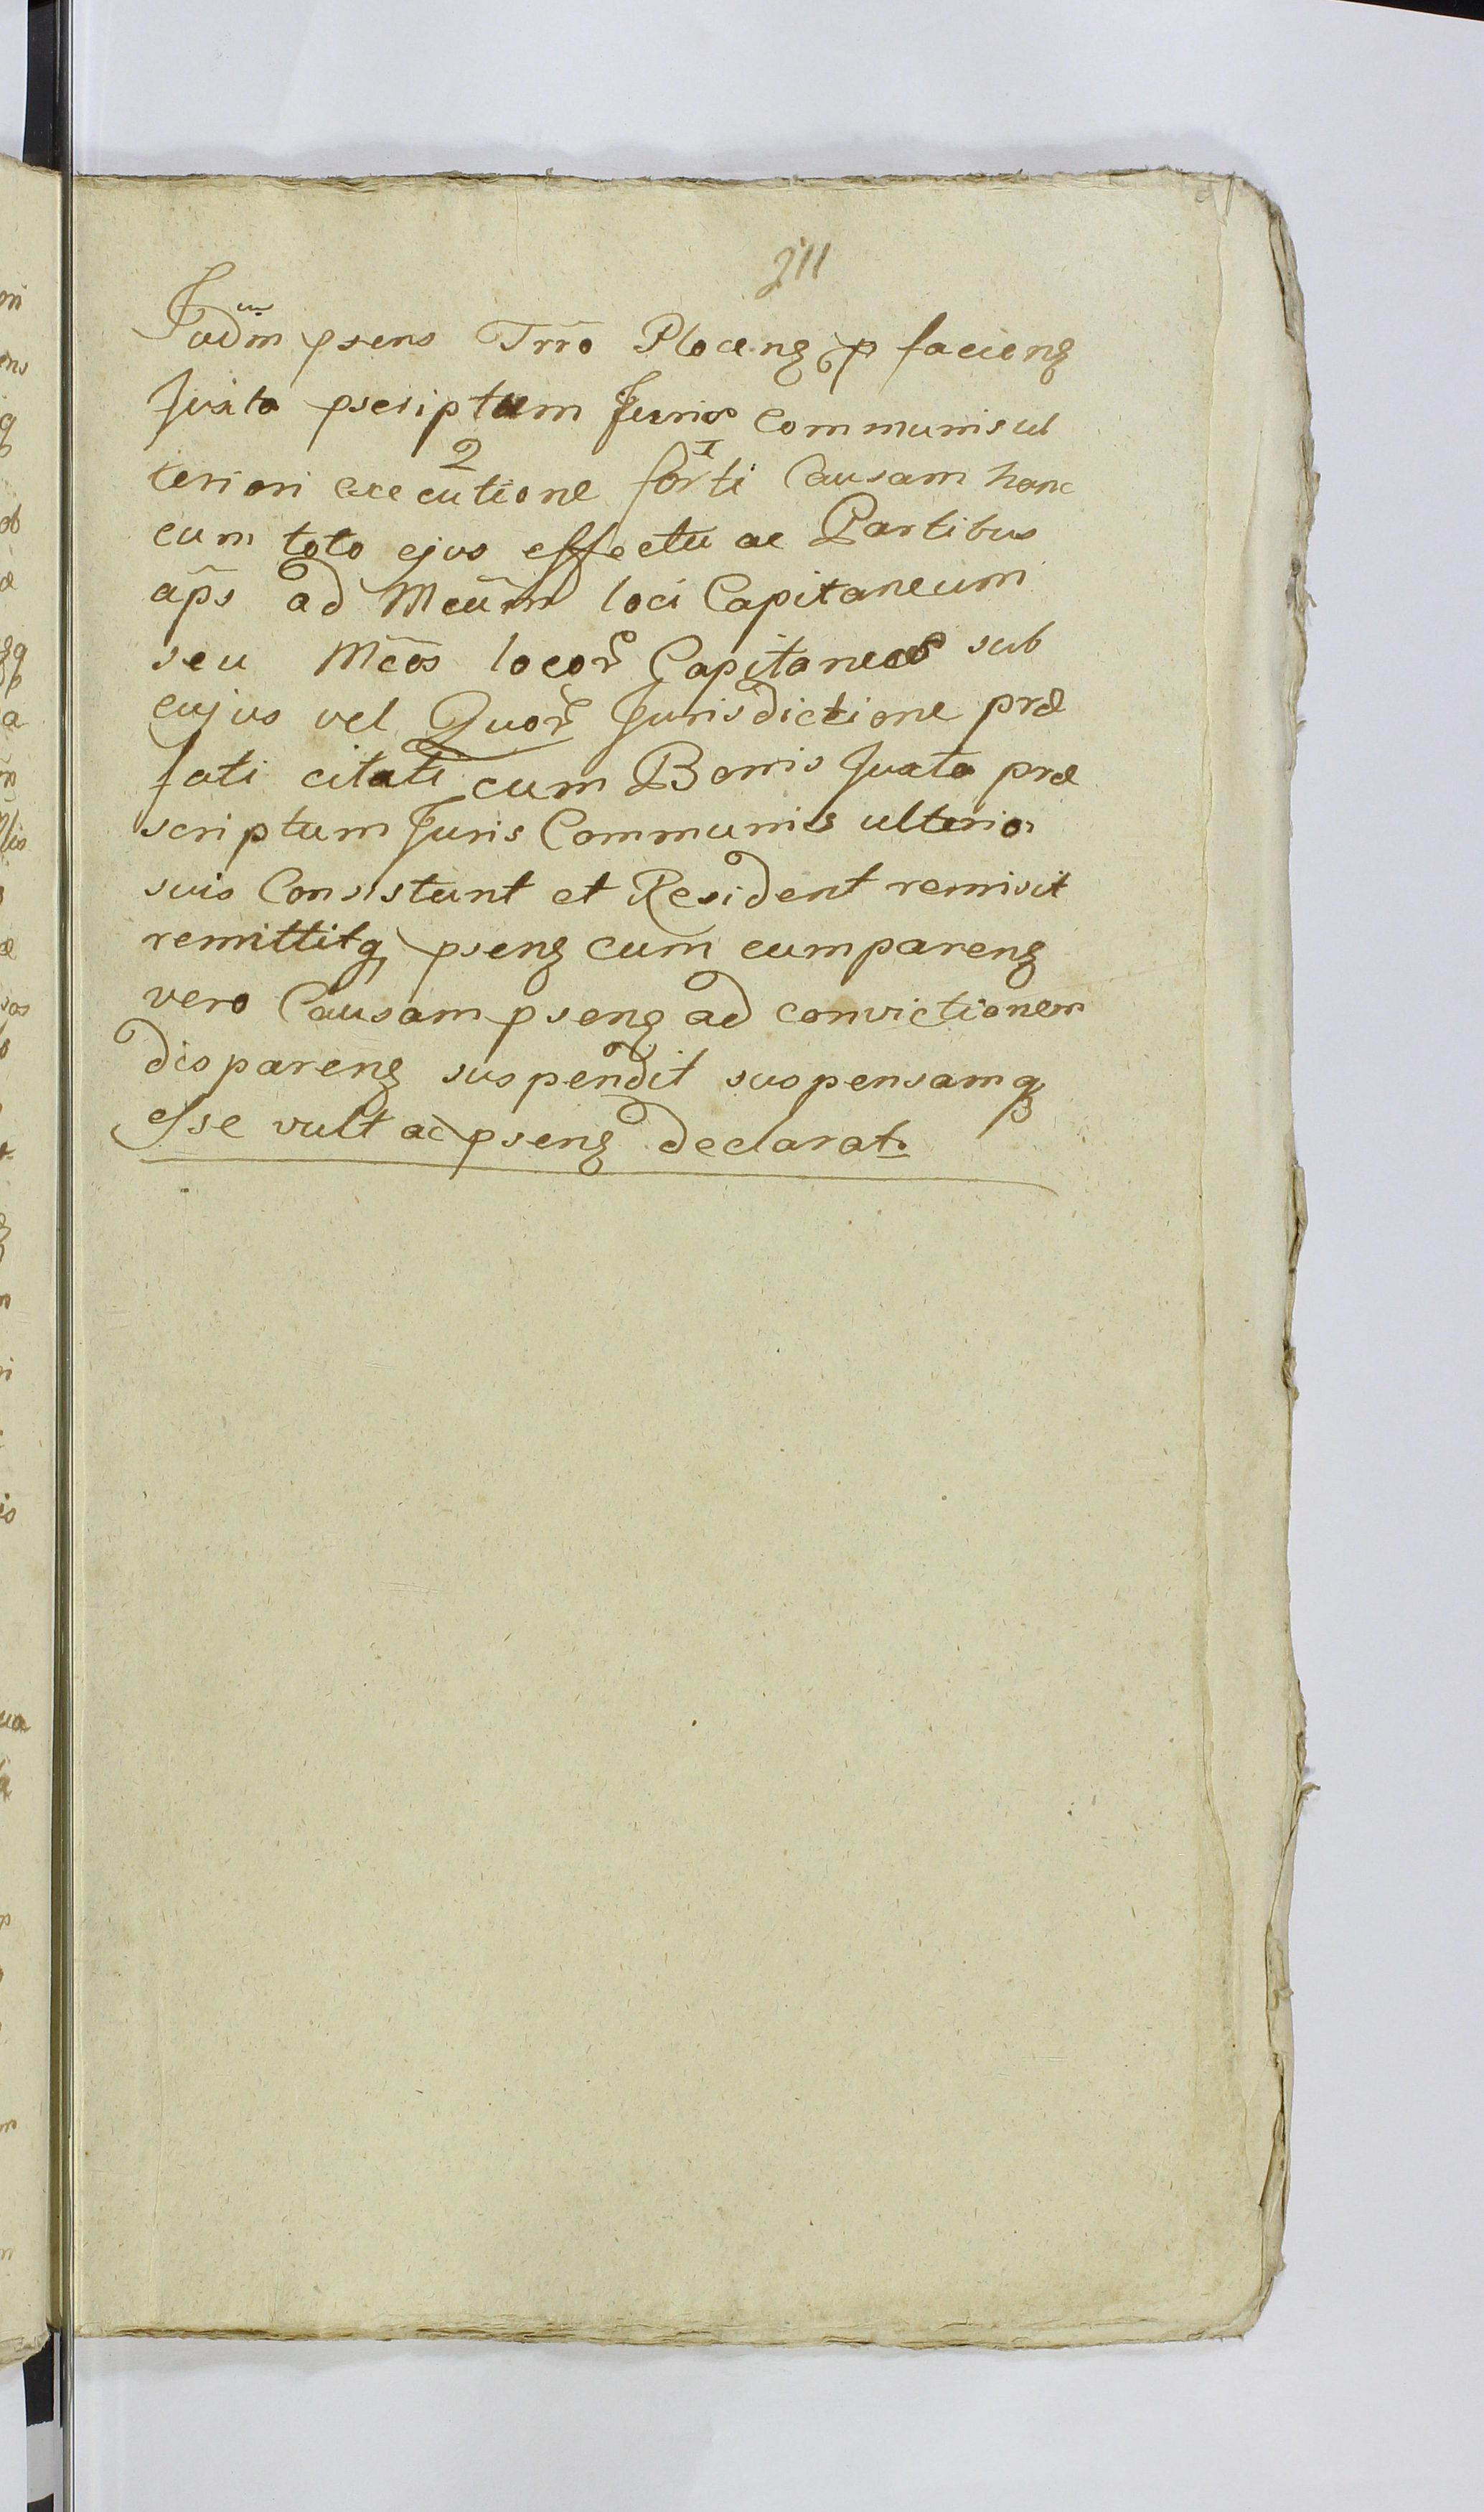 311
Judm̃ psens Trrõ Plocens p faciens
Juxta pscriptum Juris Communis ul
teriori executione forti Causam hanc
cum toto ejus effectu ac Partibus
ap̃s ad Mcum̃ loci Capitaneum
seu Mcõs locor Capitaneos sub
cujus vel Quor Jurisdictione præ
fati citati cum Bonis Juxta præ
scriptum Juris Communis ulterio
suis Consistunt et Resident remisit
remittitq psens cum cumparens
vero Causam psens ad convictionem
disparens suspendit suspensamq
esse vult ac psens declarat.